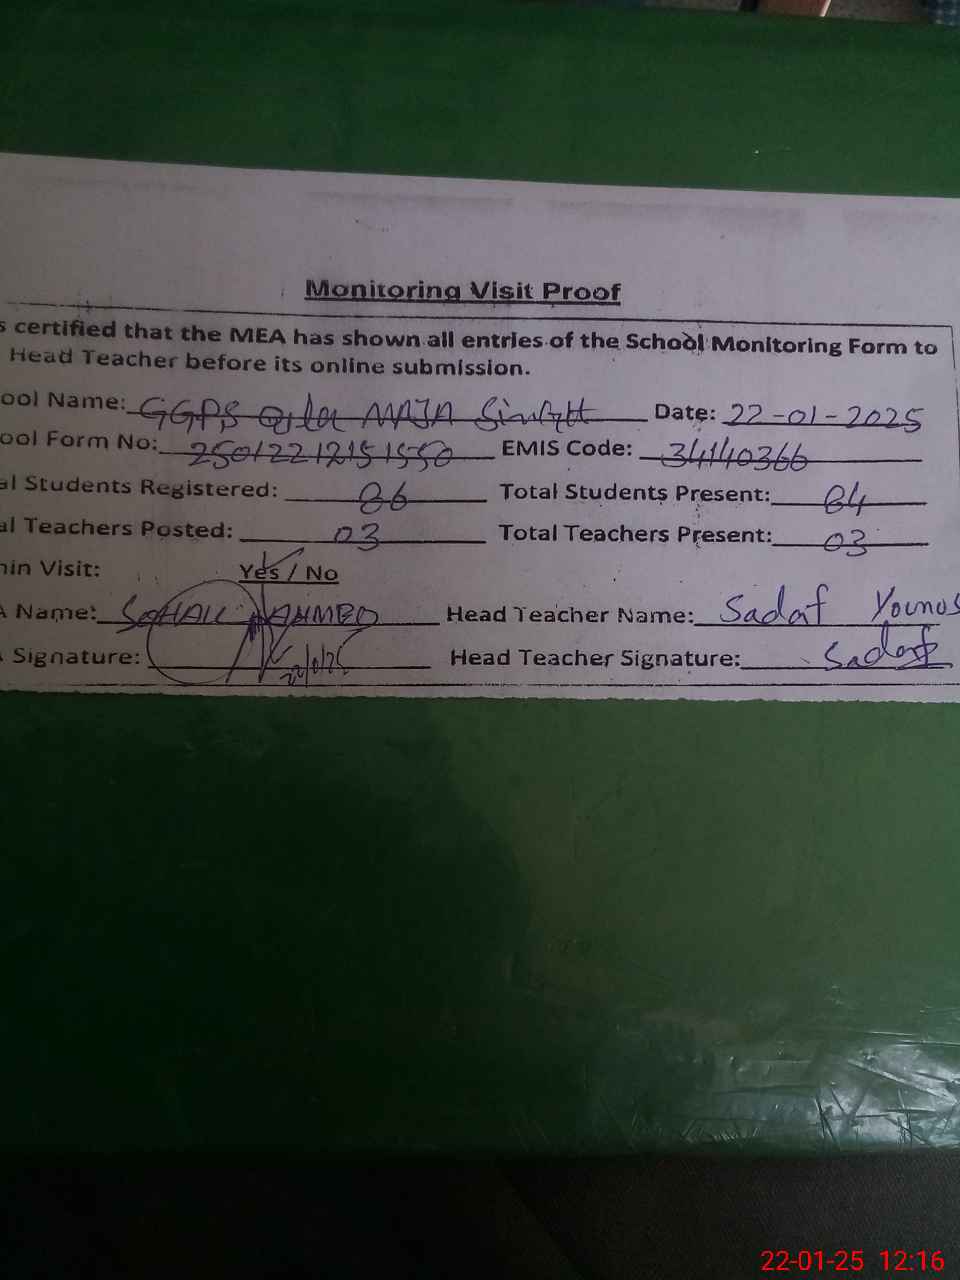 Monitoring Visit Proof
s certified that the MEA has shown all entries of the School Monitoring Form to
Head Teacher before its online submission.
ool Name: GGPS Qila MAJA Singh Date: 22-01-2025
ool Form No: EMIS Code: 34140366
al Students Registered: 86 Total Students Present: 84
al Teachers Posted: 03 Total Teachers Present: 03
min Visit: Yes / No
A Name: SOHAIL AHMED Head Teacher Name: Sadaf Younus
Signature: Head Teacher Signature: Sadaf
22-01-25 12:16